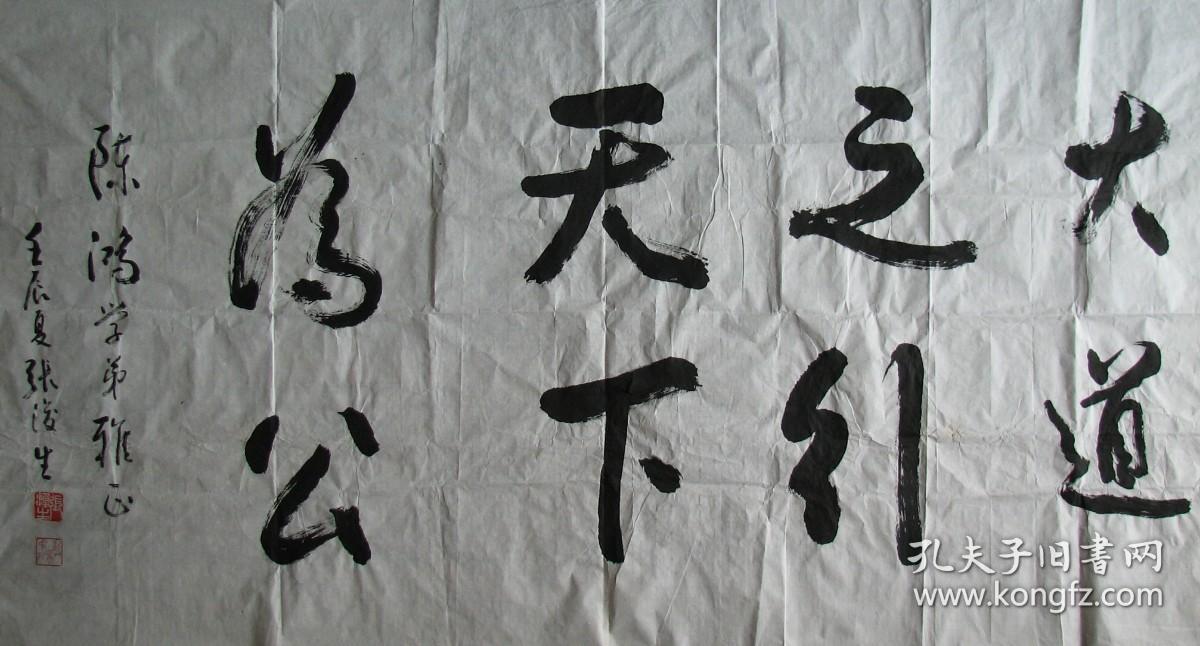 大道
之行
天下
為公
陈鸿学弟雅正
壬辰夏张浚生
孔夫子旧书网
www.kongfz.com